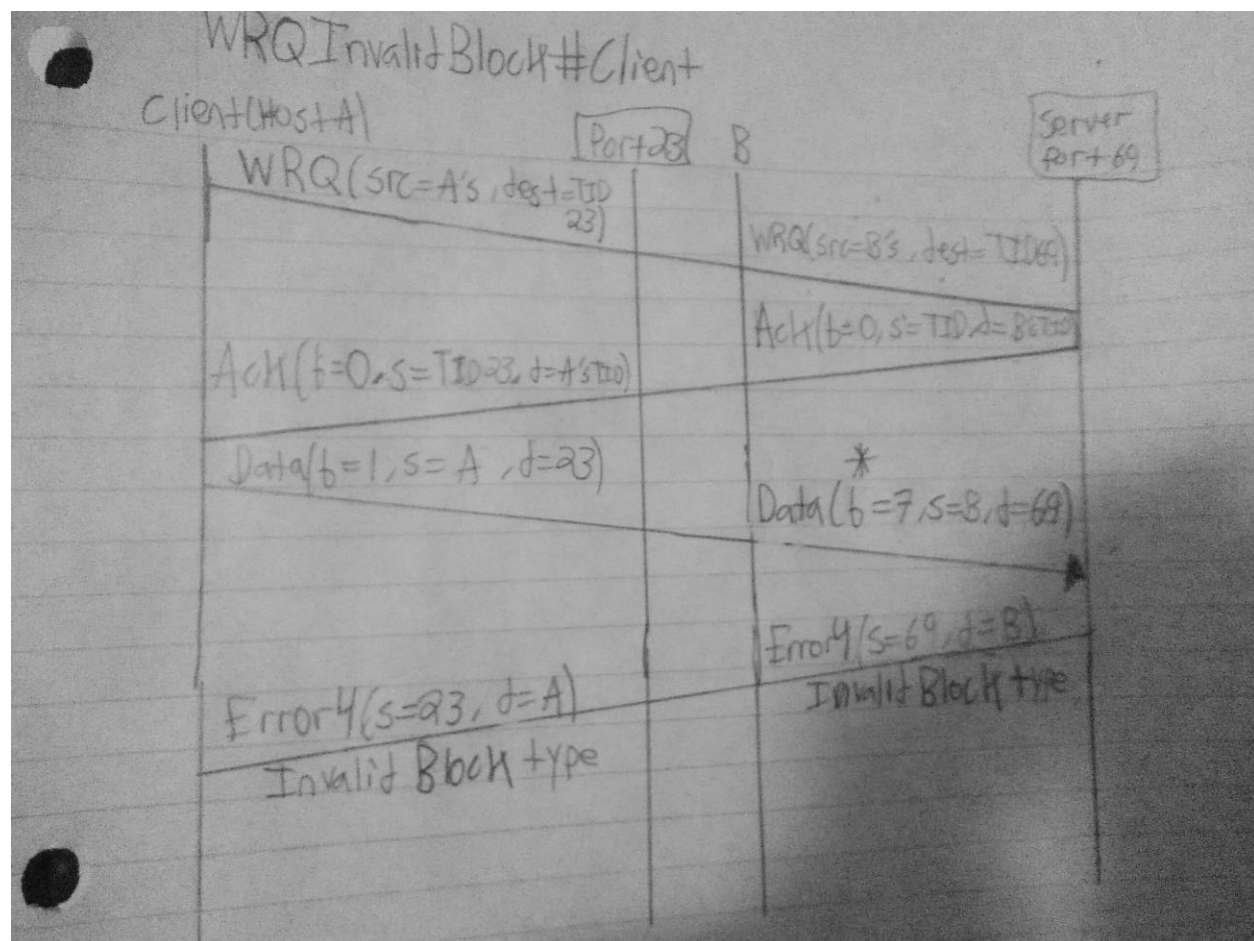 WRQInvalidBlock#Client
Client(HostA)
Port23
B
Server
Port69
WRQ(src=A's, dest=TID
23)
WRQ(src=B's, dest=TID69)
Ack(b=0, s=TID, d=B'sTID)
Ack(b=0, s=TID23, d=A'sTID)
Data(b=1, s=A, d=23)
*
Data(b=7, s=B, d=69)
Error4(s=69, d=B)
Invalid Block type
Error4(s=23, d=A)
Invalid Block type